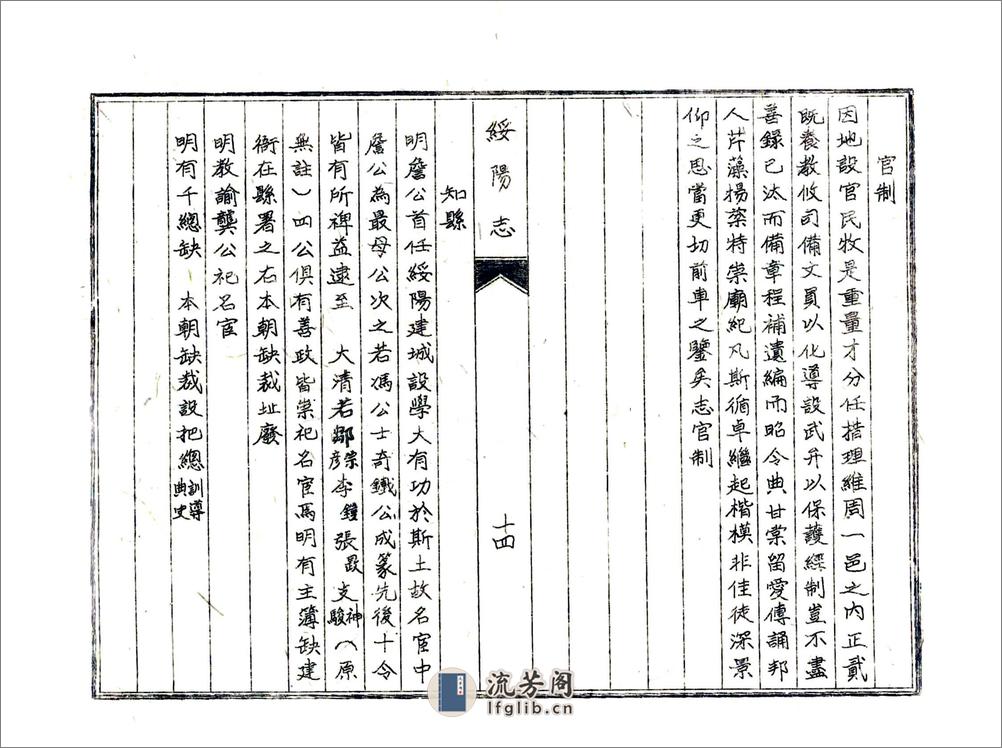 官制
因地設官民牧是重量才分任措理維周一邑之内正貳
既養教攸司備文員以化導設武弁以保護經制豈不盡
善録已汰而備章程補遺編而昭令典甘棠留愛傳誦邦
人芹藻揚棻特崇廟祀凡斯循卓繼起楷模非佳徒深景
仰之思當更切前車之鑒矣志官制
綏陽志
十四
知縣
明詹公首任綏陽建城設學大有功於斯土故名宦中
詹公為最母公次之若馮公士奇鐵公成篆先後十令
皆有所裨益逮至 大清若鄒宗彥李鍾張毀支神駿(原
無註)四公俱有善政皆崇祀名宦焉明有主簿缺建
衙在縣署之右本朝缺裁址廢
明教諭龔公祀名宦
明有千總缺 本朝缺裁設把總訓導典史
流芳阁
lfglib.cn